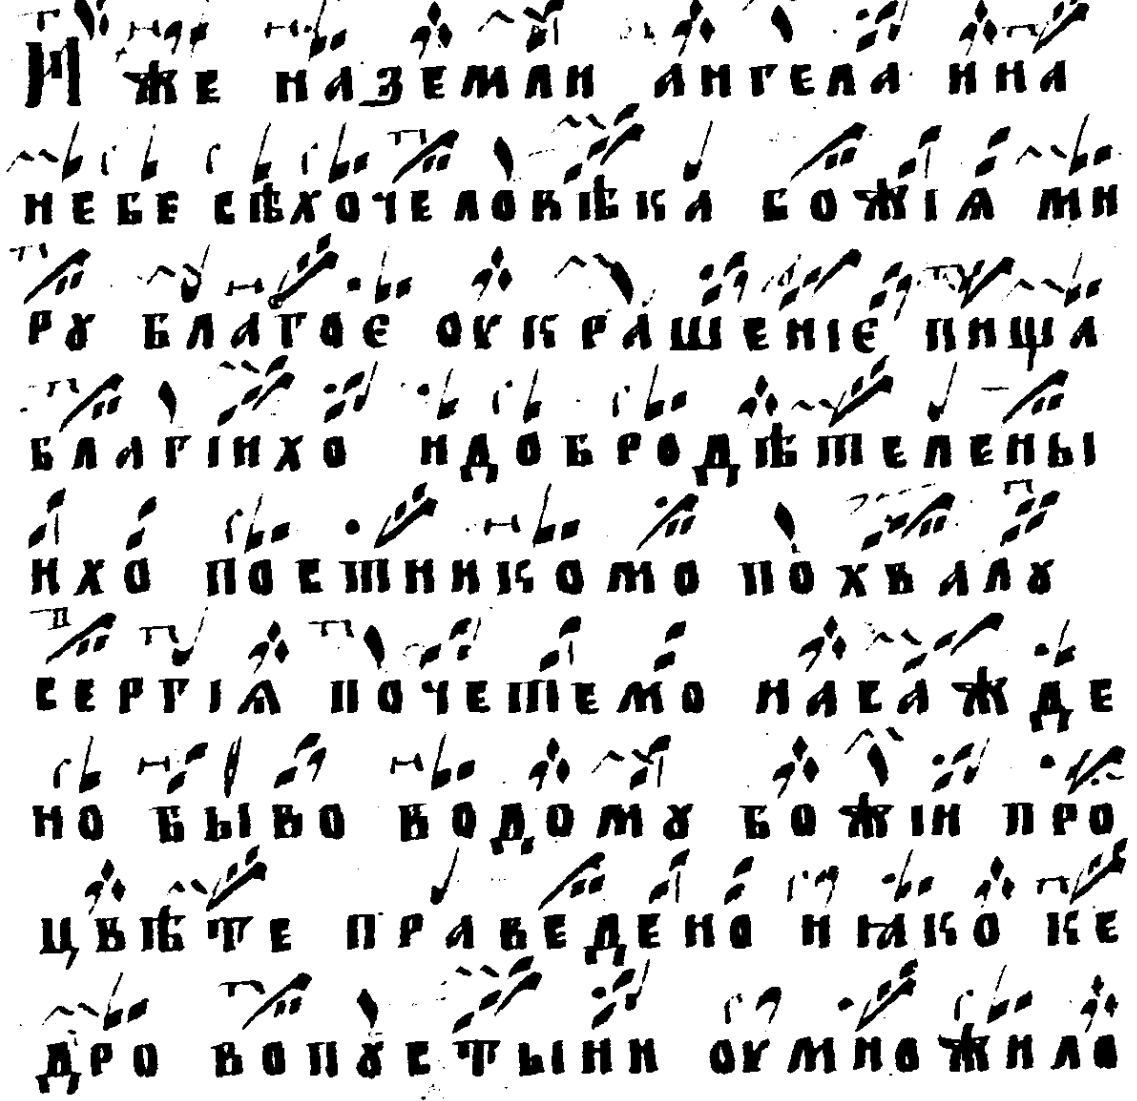 Иже наземли ангела ина
небе сѣхочеловѣка божіѧ ми
рꙋ благоє оукрашеніє пища
благіихо идобродѣтелены
ихо постникомо похвалꙋ
сергіѧ почетемо насажде
но бывъ водомꙋ божіи про
цвѣте праведено ꙗко ке
дро вопꙋстыни оумножило